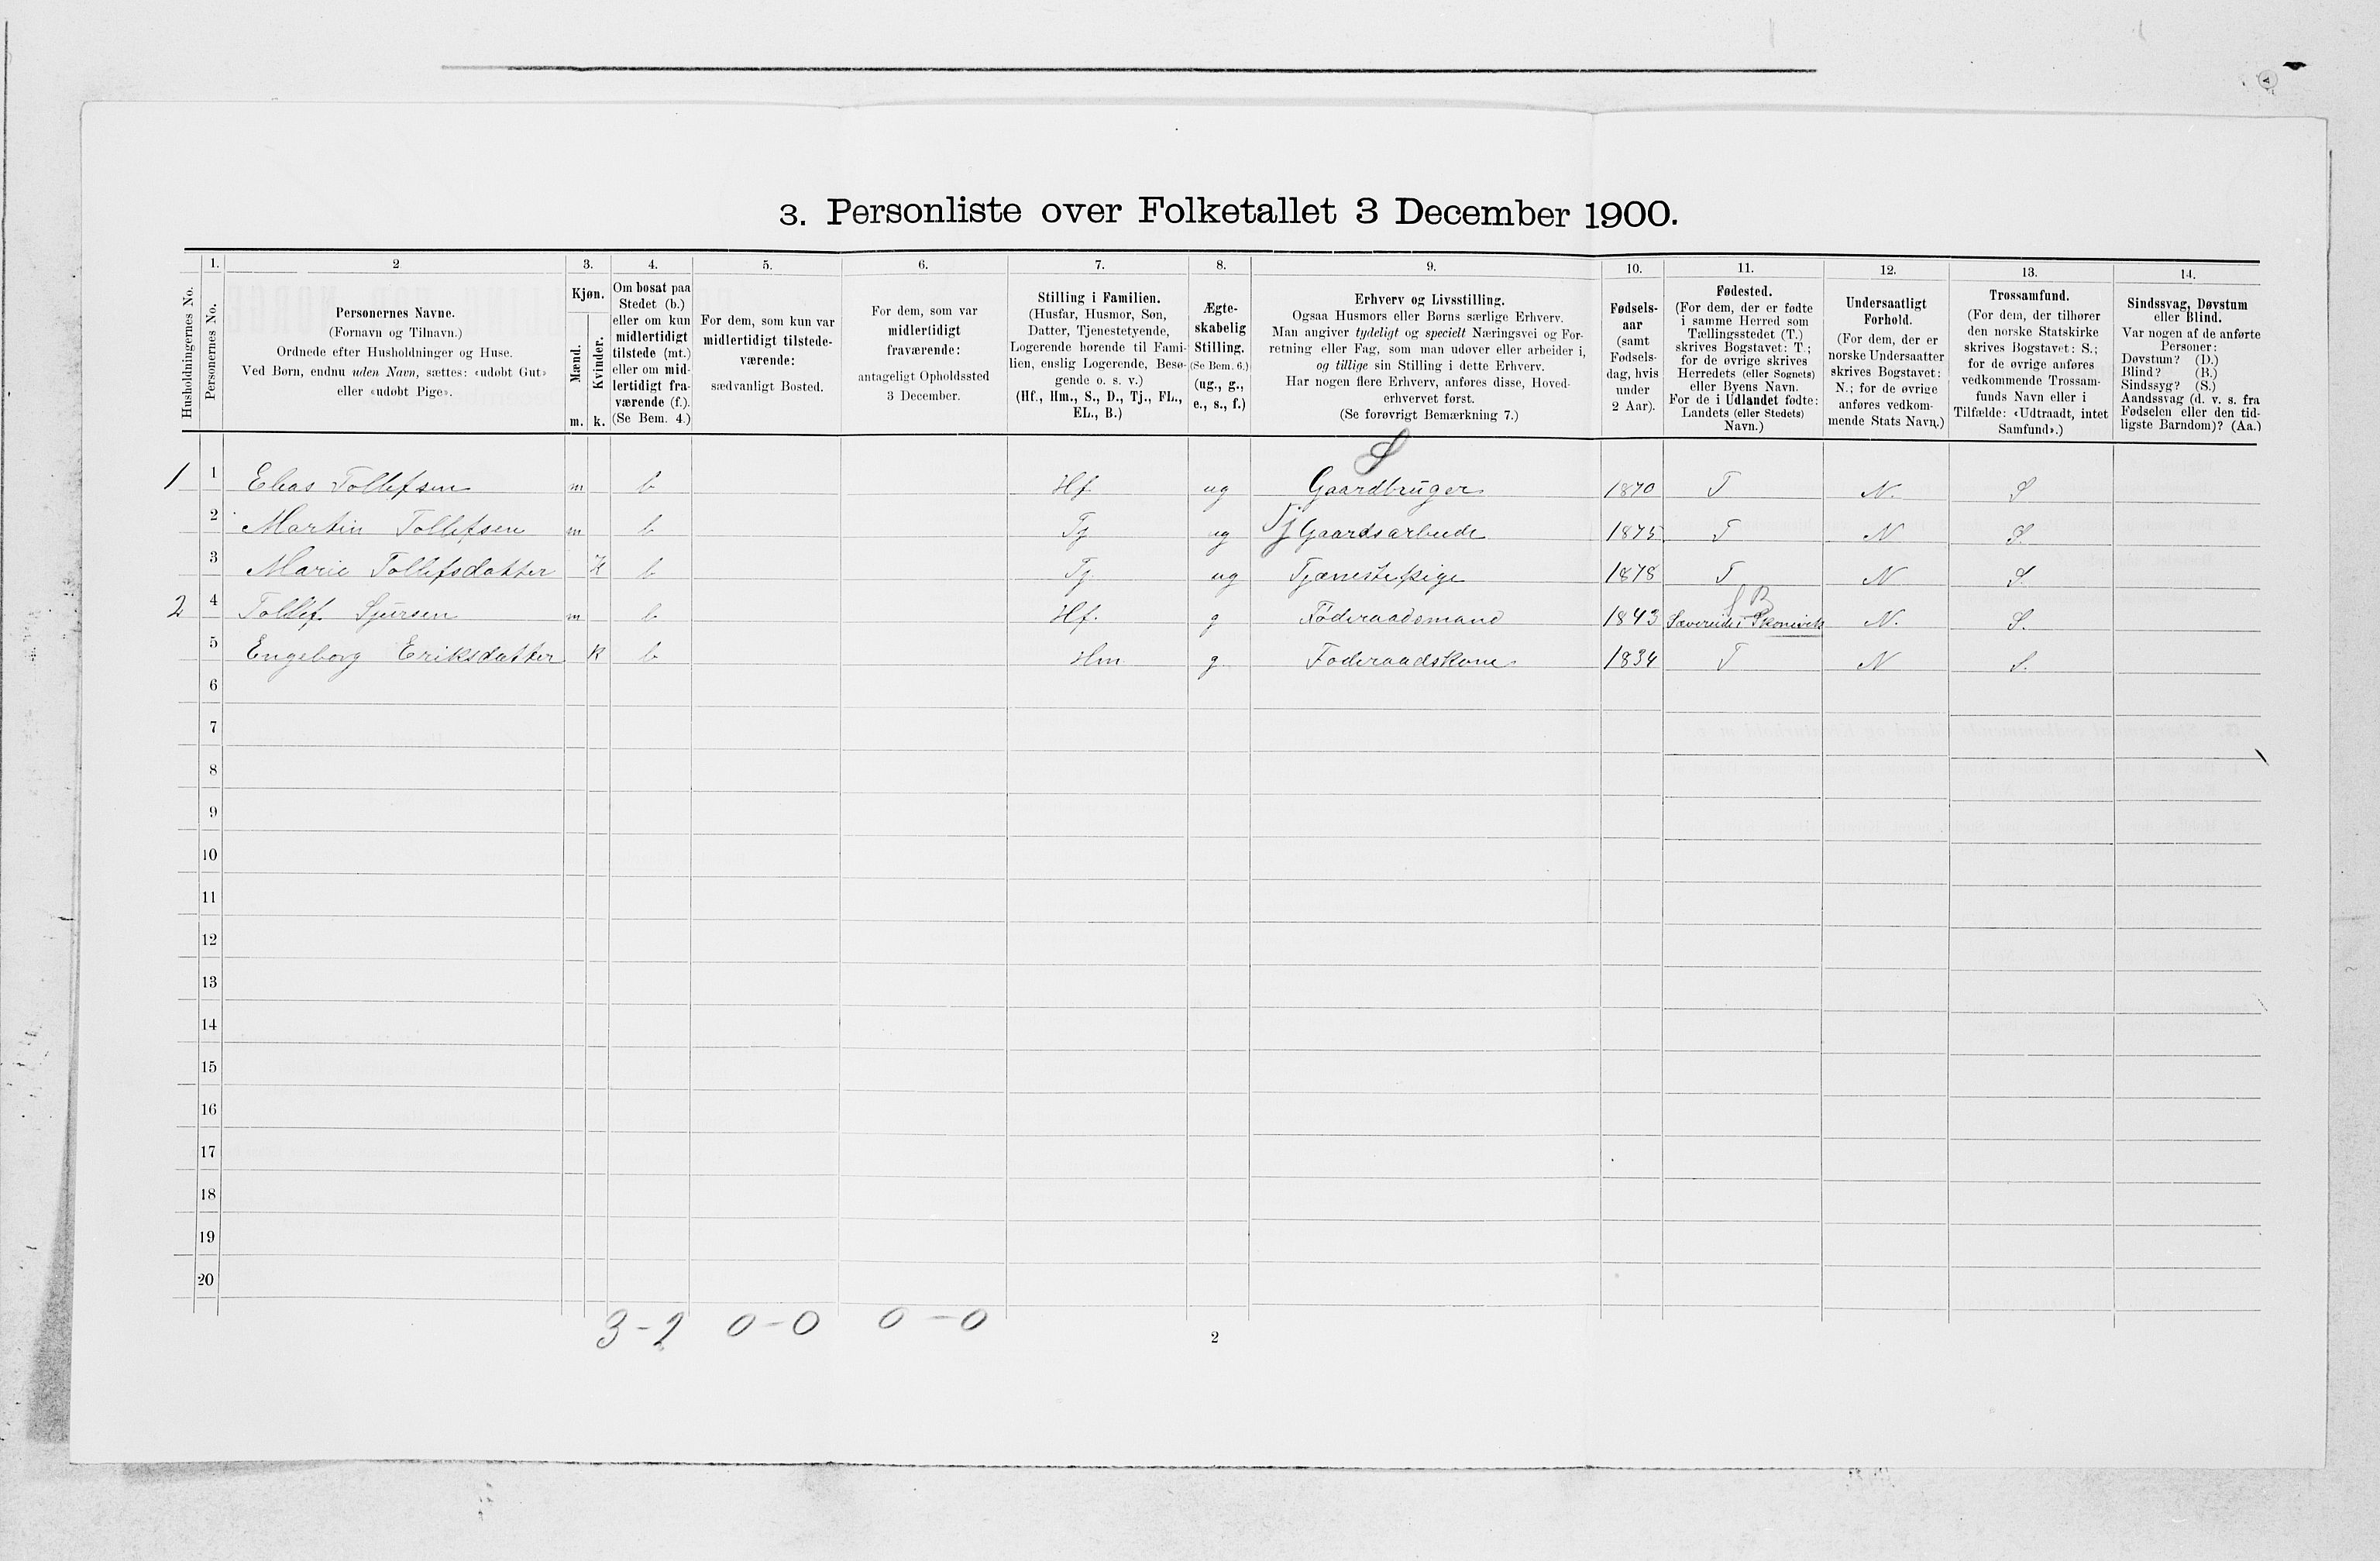 3. Personliste over Folketallet 3 December 1900.
Husholdningernes No.
1.
Personernes No.
2
Personernes Navne.
(Fornavn og Tilnavn.)
Ordnede efter Husholdninger og Huse.
Ved Børn, endnu uden Navn, sættes: «udøbt Gut»
eller «udøbt Pige».
3.
Kjøn.
Mænd.
Kvinder.
m. k.
4.
Om bosat paa
Stedet (b.)
eller om kun
midlertidigt
tilstede (mt.)
eller om mid-
lertidigt fra-
værende (f.).
(Se Bem. 4.)
5.
For dem, som kun var
midlertidigt tilstede-
værende:
sædvanligt Bosted.
6.
For dem, som var
midlertidigt
fraværende:
antageligt Opholdssted
3 December.
7.
Stilling i Familien.
(Husfar, Husmor, Søn,
Datter, Tjenestetyende,
Logerende hørende til Fami-
lien, enslig Logerende, Besø-
gende o. s. v.)
(Hf., Hm., S., D., Tj., FL.,
EL., B.)
8.
Ægte-
skabelig
Stilling.
(Se Bem. 6.)
(ug., g.,
e., s., f.)
9.
Erhverv og Livsstilling.
Ogsaa Husmors eller Børns særlige Erhverv.
Man angiver tydeligt og specielt Næringsvei og For-
retning eller Fag, som man udøver eller arbeider i,
og tillige sin Stilling i dette Erhverv.
Har nogen flere Erhverv, anføres disse, Hoved-
erhvervet først.
(Se forøvrigt Bemærkning 7.)
10.
Fødsels-
aar
(samt
Fødsels-
dag, hvis
under
2 Aar).
11.
Fødested.
(For dem, der er fødte
i samme Herred som
Tællingsstedet (T.)
skrives Bogstavet: T.;
for de øvrige skrives
Herredets (eller Sognets)
eller Byens Navn.
For de i Udlandet fødte:
Landets (eller Stedets)
Navn.)
12.
Undersaatligt
Forhold.
(For dem, der er
norske Undersaatter
skrives Bogstavet:
N.; for de øvrige
anføres vedkom-
mende Stats Navn.)
13.
Trossamfund.
(For dem, der tilhører
den norske Statskirke
skrives Bogstavet: S.;
for de øvrige anføres
vedkommende Trossam-
funds Navn eller i
Tilfælde: «Udtraadt, intet
Samfund».)
14.
Sindssvag, Døvstum
eller Blind.
Var nogen af de anførte
Personer:
Døvstum? (D.)
Blind? (B.)
Sindssyg? (S.)
Aandssvag (d. v. s. fra
Fødselen eller den tid-
ligste Barndom)? (Aa.)
S
1 1 Elias Tollefsen m b Hf. ug Gaardbruger 1870 T N. S
2 Martin Tollefsen m b Tj ug Tj Gaardsarbeide 1875 T N S.
3 Marie Tollefsdatter K b Tj. ug Tjenestepige 1878 T N S.
2 4 Tollef Sjursen m b Hf. g Føderaadsmand 1843 Skonevik N. S.
5 Engeborg Eriksdatter K b Hm g Føderaadskone 1834 T N S.
6
7
8
9
10
11
12
13
14
15
16
17
18
19
20
3-2 0-0 0-0
2